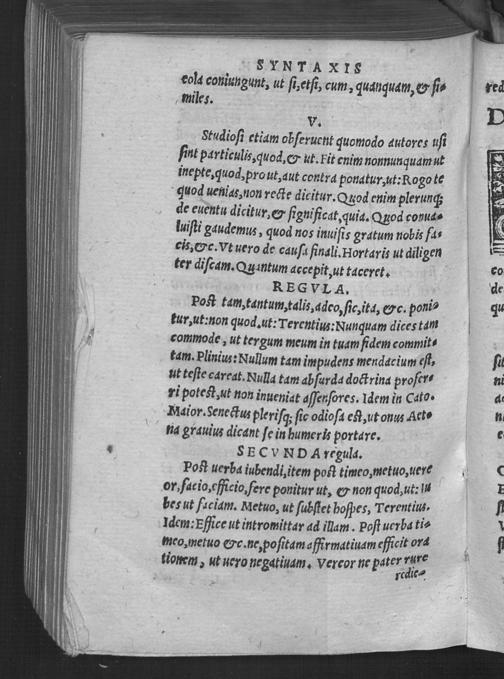 SYNTAXIS
cola coniungunt, ut ſi, etſi, cum, quanquam, & ſi-
miles.
V.
Studioſi etiam obſeruent quomodo autores uſi
ſint particulis, quod, & ut. Fit enim nonnunquam ut
inepte, quod, pro ut, aut contra ponatur, ut: Rogo te
quod uenias, non recte dicitur. Quod enim plerunq;
de euentu dicitur, & ſignificat, quia. Quod conua-
luiſti gaudemus, quod nos inuiſis gratum nobis fa-
cis, &c. Vt uero de cauſa finali. Hortaris ut diligen
ter diſcam. Quantum accepit, ut taceret.
REGVLA.
Poſt tam, tantum, talis, adeo, ſic, ita, &c. poni-
tur, ut: non quod, ut: Terentius: Nunquam dices tam
commode, ut tergum meum in tuam fidem commit-
tam. Plinius: Nullum tam impudens mendacium eſt,
ut teſte careat. Nulla tam abſurda doctrina profer-
ri poteſt, ut non inueniat aſſenſores. Idem in Cato.
Maior. Senectus pleriſq; ſic odioſa eſt, ut onus Aet-
na grauius dicant ſe in humeris portare.
SECVNDA regula.
Poſt uerba iubendi, item poſt timeo, metuo, uere
or, facio, efficio, fere ponitur ut, & non quod, ut: Iu
bes ut faciam. Metuo, ut ſubſtet hoſpes, Terentius.
Idem: Effice ut intromittar ad illam. Poſt uerba ti-
meo, metuo &c. ne, poſitam affirmatiuam efficit ora
tionem, ut uero negatiuam. Vereor ne pater rure
redie-
red
D
co
de
qu